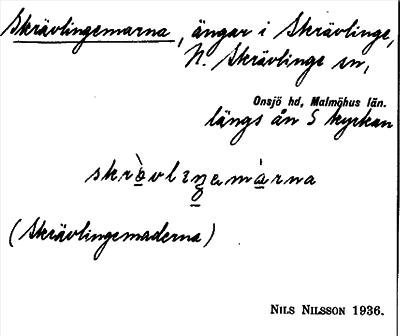 Skrävlingemarna, ängar i Skrävlinge,
N. Skrävlinge sn,
Onsjö hd, Malmöhus län.
längs ån S kyrkan
skràvlıŋamàrna
(Skrävlingemaderna)
NILS NILSSON 1936.